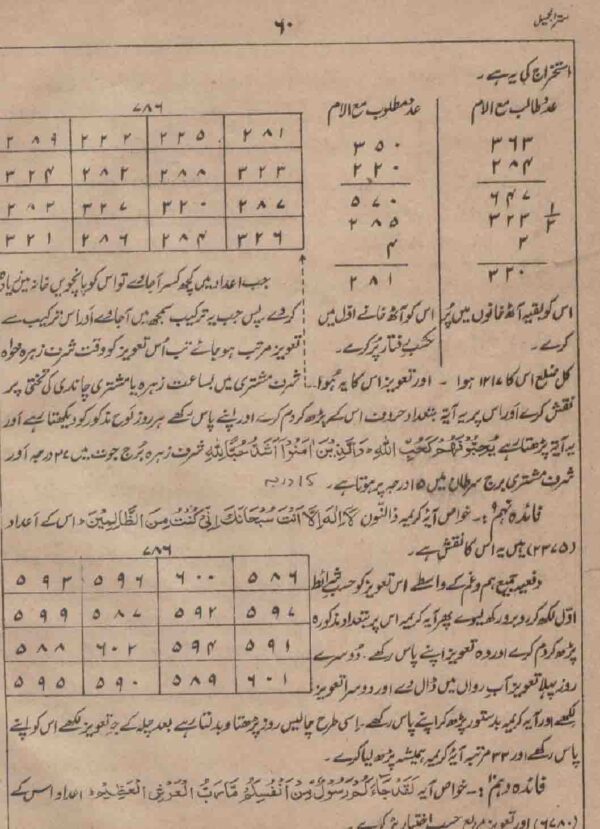 ۶۰
استخراج کی یہ ہے۔
عدد طالب مع الام
۳۶۳
۲۸۴
۶۴۷
۳۲۳ ۱/۲
۳
۳۲۰
اس کو بقیہ آٹھ خانوں میں پُر
کرے۔
عدد مطلوب مع الام
۳۵۰
۲۲۰
۵۷۰
۲۸۵
۴
۲۸۱
اس کو آٹھ خانے اول میں
بکسبِ رفتار پُر کرے۔
۷۸۶
۲۸۹ ۲۲۲ ۲۲۵ ۲۸۱
۲۲۴ ۲۸۲ ۲۸۸ ۲۲۳
۲۸۳ ۳۲۷ ۳۲۰ ۲۸۷
۳۲۱ ۲۸۶ ۲۸۴ ۳۲۶
جب اعداد میں کچھ کسر آجاوے تو اس کو پانچویں خانہ میں زیادہ
کردے۔ پس جب یہ ترکیب سمجھ میں آجاوے اور اس ترکیب سے
تعویز مرتب ہوجائے تب اُس تعویز کو وقت شرف زہرہ خواہ
کل ضلع اس کا ۱۲۱۷ ہوا ۔ اور تعویز اس کا یہ ہُوا۔ شرف مشتری میں بساعت زہرہ یا مشتری چاندی کی تختی پر
نقش کرے اور اس پر یہ آیۃ بتعداد حروف اس کے پڑھ کر دم کرے اور اپنے پاس رکھے ہر روز لوح مذکور کو دیکھتا رہے اور
یہ آیۃ پڑھتا رہے يُحِبُّونَهُمْ كَحُبِّ اللهِ وَالَّذِينَ اٰمَنُوْا اَشَدُّ حُبًّا لِلّٰهِ شرف زہرہ برج حوت میں ۲۷ درجہ اور
شرف مشتری برج سرطان میں ۱۵ درجہ پر ہوتا ہے۔ ۱۵ درجہ
فائدہ نہم :۔ خواص آیۂ کریمہ ذالنون لَا اِلٰهَ اِلَّا اَنْتَ سُبْحَانَكَ اِنِّيْ كُنْتُ مِنَ الظَّالِمِيْنَ ۔ اس کے اعداد
(۲۳۷۵) ہیں یہ اس کا نقش ہے۔
۷۸۶
۵۹۳ ۵۹۶ ۶۰۰ ۵۸۶
۵۹۹ ۵۸۷ ۵۹۲ ۵۹۷
۵۸۸ ۶۰۲ ۵۹۴ ۵۹۱
۵۹۵ ۵۹۰ ۵۸۹ ۶۰۱
دفعیہ جمیع ہم و غم کے واسطے اس تعویز کو حسب شرائط
اوّل لکھ کر روبرو رکھ لیوے پھر آیہ کریمہ اس پر بتعداد مذکورہ
پڑھ کر دم کرے اور وہ تعویز اپنے پاس رکھے۔ دُوسرے
روز پہلا تعویز آبِ رواں میں ڈال دے اور دوسرا تعویز
لکھے اور آیۂ کریمہ بدستور پڑھ کر اپنے پاس رکھے۔ اسی طرح چالیس روز پڑھتا و بدلتا رہے بعد چلہ کے جو تعویز لکھے اس کو اپنے
پاس رکھے اور ۳۳ مرتبہ آیۂ کریمہ ہمیشہ پڑھ لیا کرے۔
فائدہ دہم :۔ خواص آیہ لَقَدْ جَآءَكُمْ رَسُوْلٌ مِنْ اَنْفُسِكُمْ تا رَبُّ الْعَرْشِ الْعَظِيْمِ ۔ اعداد اس کے
(۶۷۸۰) اور تعویز مربع حسب اختیار پُر کرے۔